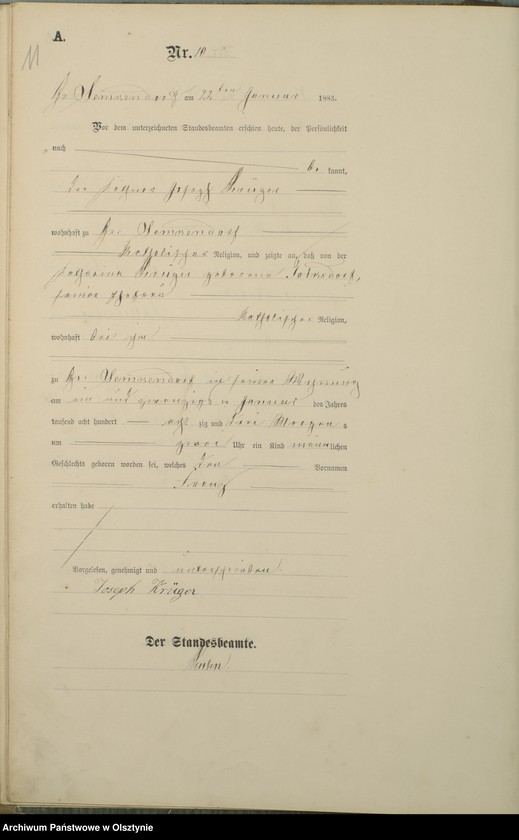 11
A.
Nr. 10
Gr. am 22ten Januar 1883.
Vor dem unterzeichneten Standesbeamten erschien heute, der Persönlichkeit
nach
be kannt,
der Joseph Krüger
wohnhaft zu Gr.
katholischer Religion, und zeigte an, daß von der
Catharina Krüger geborene
seiner Ehefrau
katholischer Religion,
wohnhaft bei ihm
zu Gr. in seiner Wohnung
am ein und zwanzigsten Januar des Jahres
tausend acht hundert acht zig und drei Morgens
um zwei Uhr ein Kind männlichen
Geschlechts geboren worden sei, welches den Vornamen
Franz
erhalten habe
Vorgelesen, genehmigt und unterschrieben
Joseph Krüger
Der Standesbeamte.
Archiwum Państwowe w Olsztynie